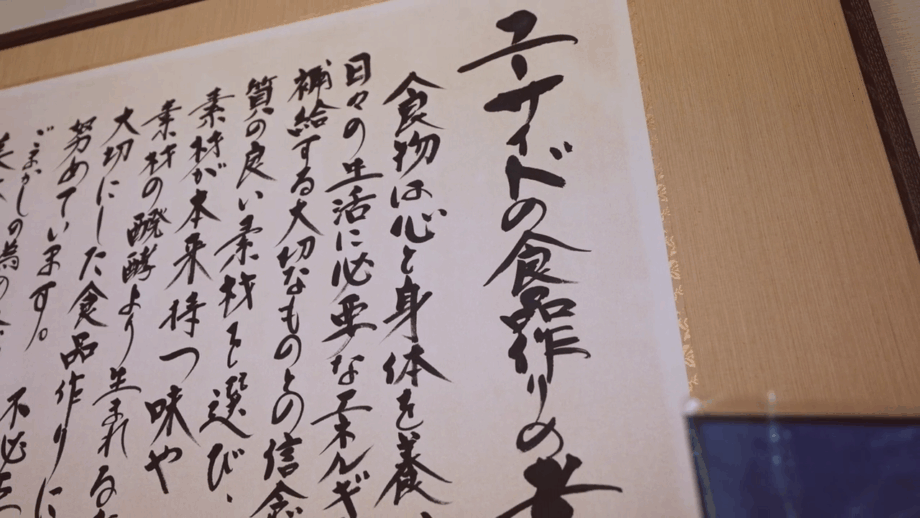 ユーサイドの食品作りの
食物は心と身体を養
日々の生活に必要なエネルギ
補給する大切なものとの信念
質の良い素材を選び、
素材が本来持つ味や
素材の醗酵より生まれる
大切にした食品作りに
努めています。
ごまかしの為の
不必